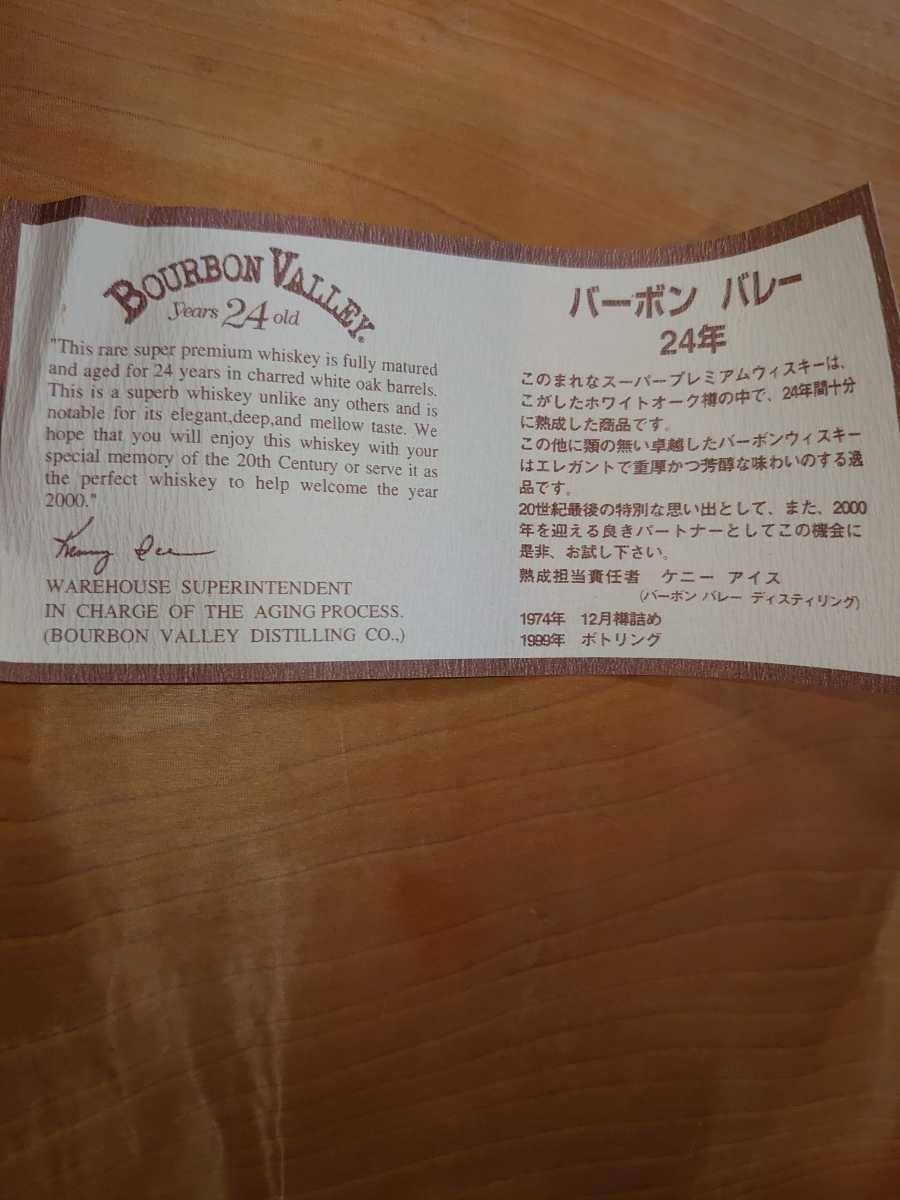 BOURBON VALLEY®
years 24 old
"This rare super premium whiskey is fully matured
and aged for 24 years in charred white oak barrels.
This is a superb whiskey unlike any others and is
notable for its elegant,deep,and mellow taste. We
hope that you will enjoy this whiskey with your
special memory of the 20th Century or serve it as
the perfect whiskey to help welcome the year
2000."
WAREHOUSE SUPERINTENDENT
IN CHARGE OF THE AGING PROCESS.
(BOURBON VALLEY DISTILLING CO.,)
バーボン バレー
24年
このまれなスーパープレミアムウィスキーは、
こがしたホワイトオーク樽の中で、24年間十分
に熟成した商品です。
この他に類の無い卓越したバーボンウィスキー
はエレガントで重厚かつ芳醇な味わいのする逸
品です。
20世紀最後の特別な思い出として、また、2000
年を迎える良きパートナーとしてこの機会に
是非、お試し下さい。
熟成担当責任者 ケニー アイス
(バーボン バレー ディスティリング)
1974年 12月樽詰め
1999年 ボトリング